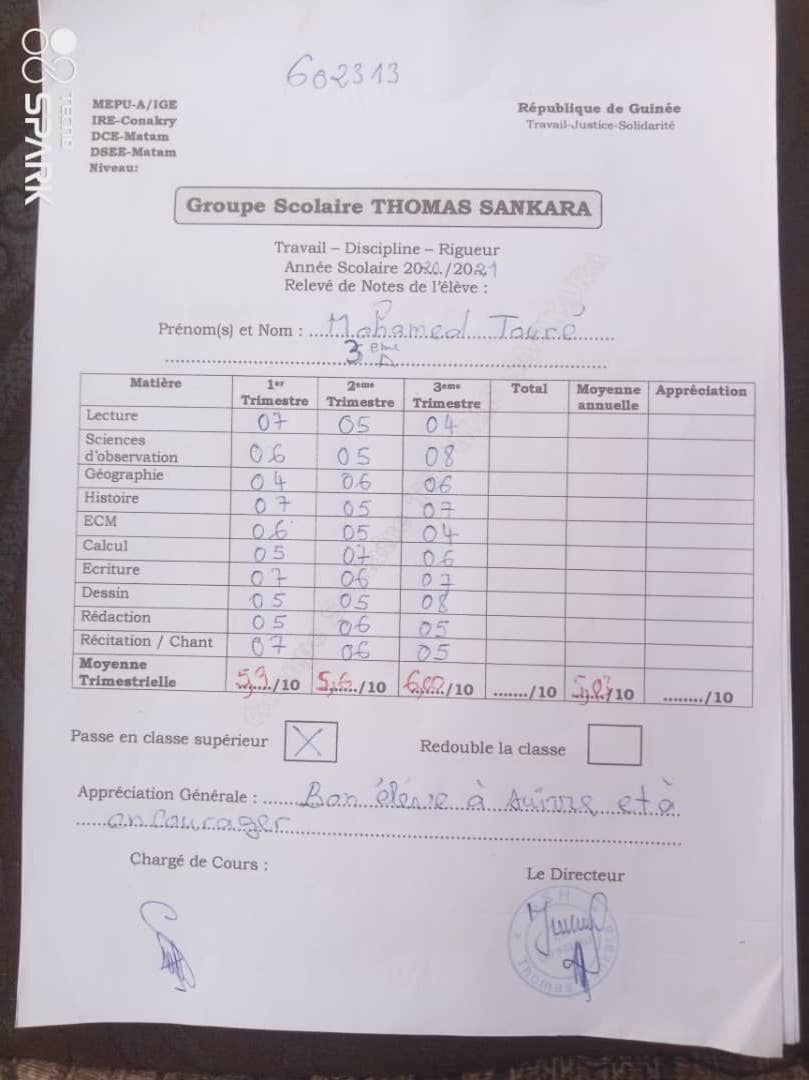 602313
MEPU-A/IGE
IRE-Conakry
DCE-Matam
DSEE-Matam
Niveau:
République de Guinée
Travail-Justice-Solidarité
Groupe Scolaire THOMAS SANKARA
Travail – Discipline – Rigueur
Année Scolaire 2020/2021
Relevé de Notes de l'élève :
Prénom(s) et Nom : Mohamed Touré
3eme A
Matière 1er Trimestre 2eme Trimestre 3eme Trimestre Total Moyenne annuelle Appréciation
Lecture 07 05 04
Sciences d'observation 06 05 08
Géographie 04 06 06
Histoire 07 05 07
ECM 06 05 04
Calcul 05 07 06
Ecriture 07 06 07
Dessin 05 05 08
Rédaction 05 06 05
Récitation / Chant 07 06 05
Moyenne Trimestrielle 5,9/10 5,6/10 6,00/10 ......./10 /10 ......../10
Passe en classe supérieur X Redouble la classe
Appréciation Générale : Bon élève à suivre et à
encourager
Chargé de Cours :
Le Directeur
Thomas Sankara
SPARK